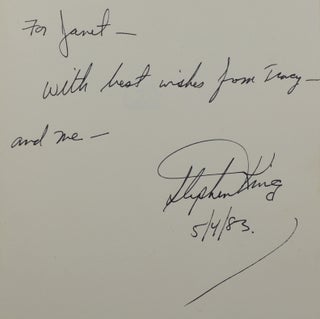 For Janet —
with best wishes from Tracy —
and me —
Stephen King
5/4/83.